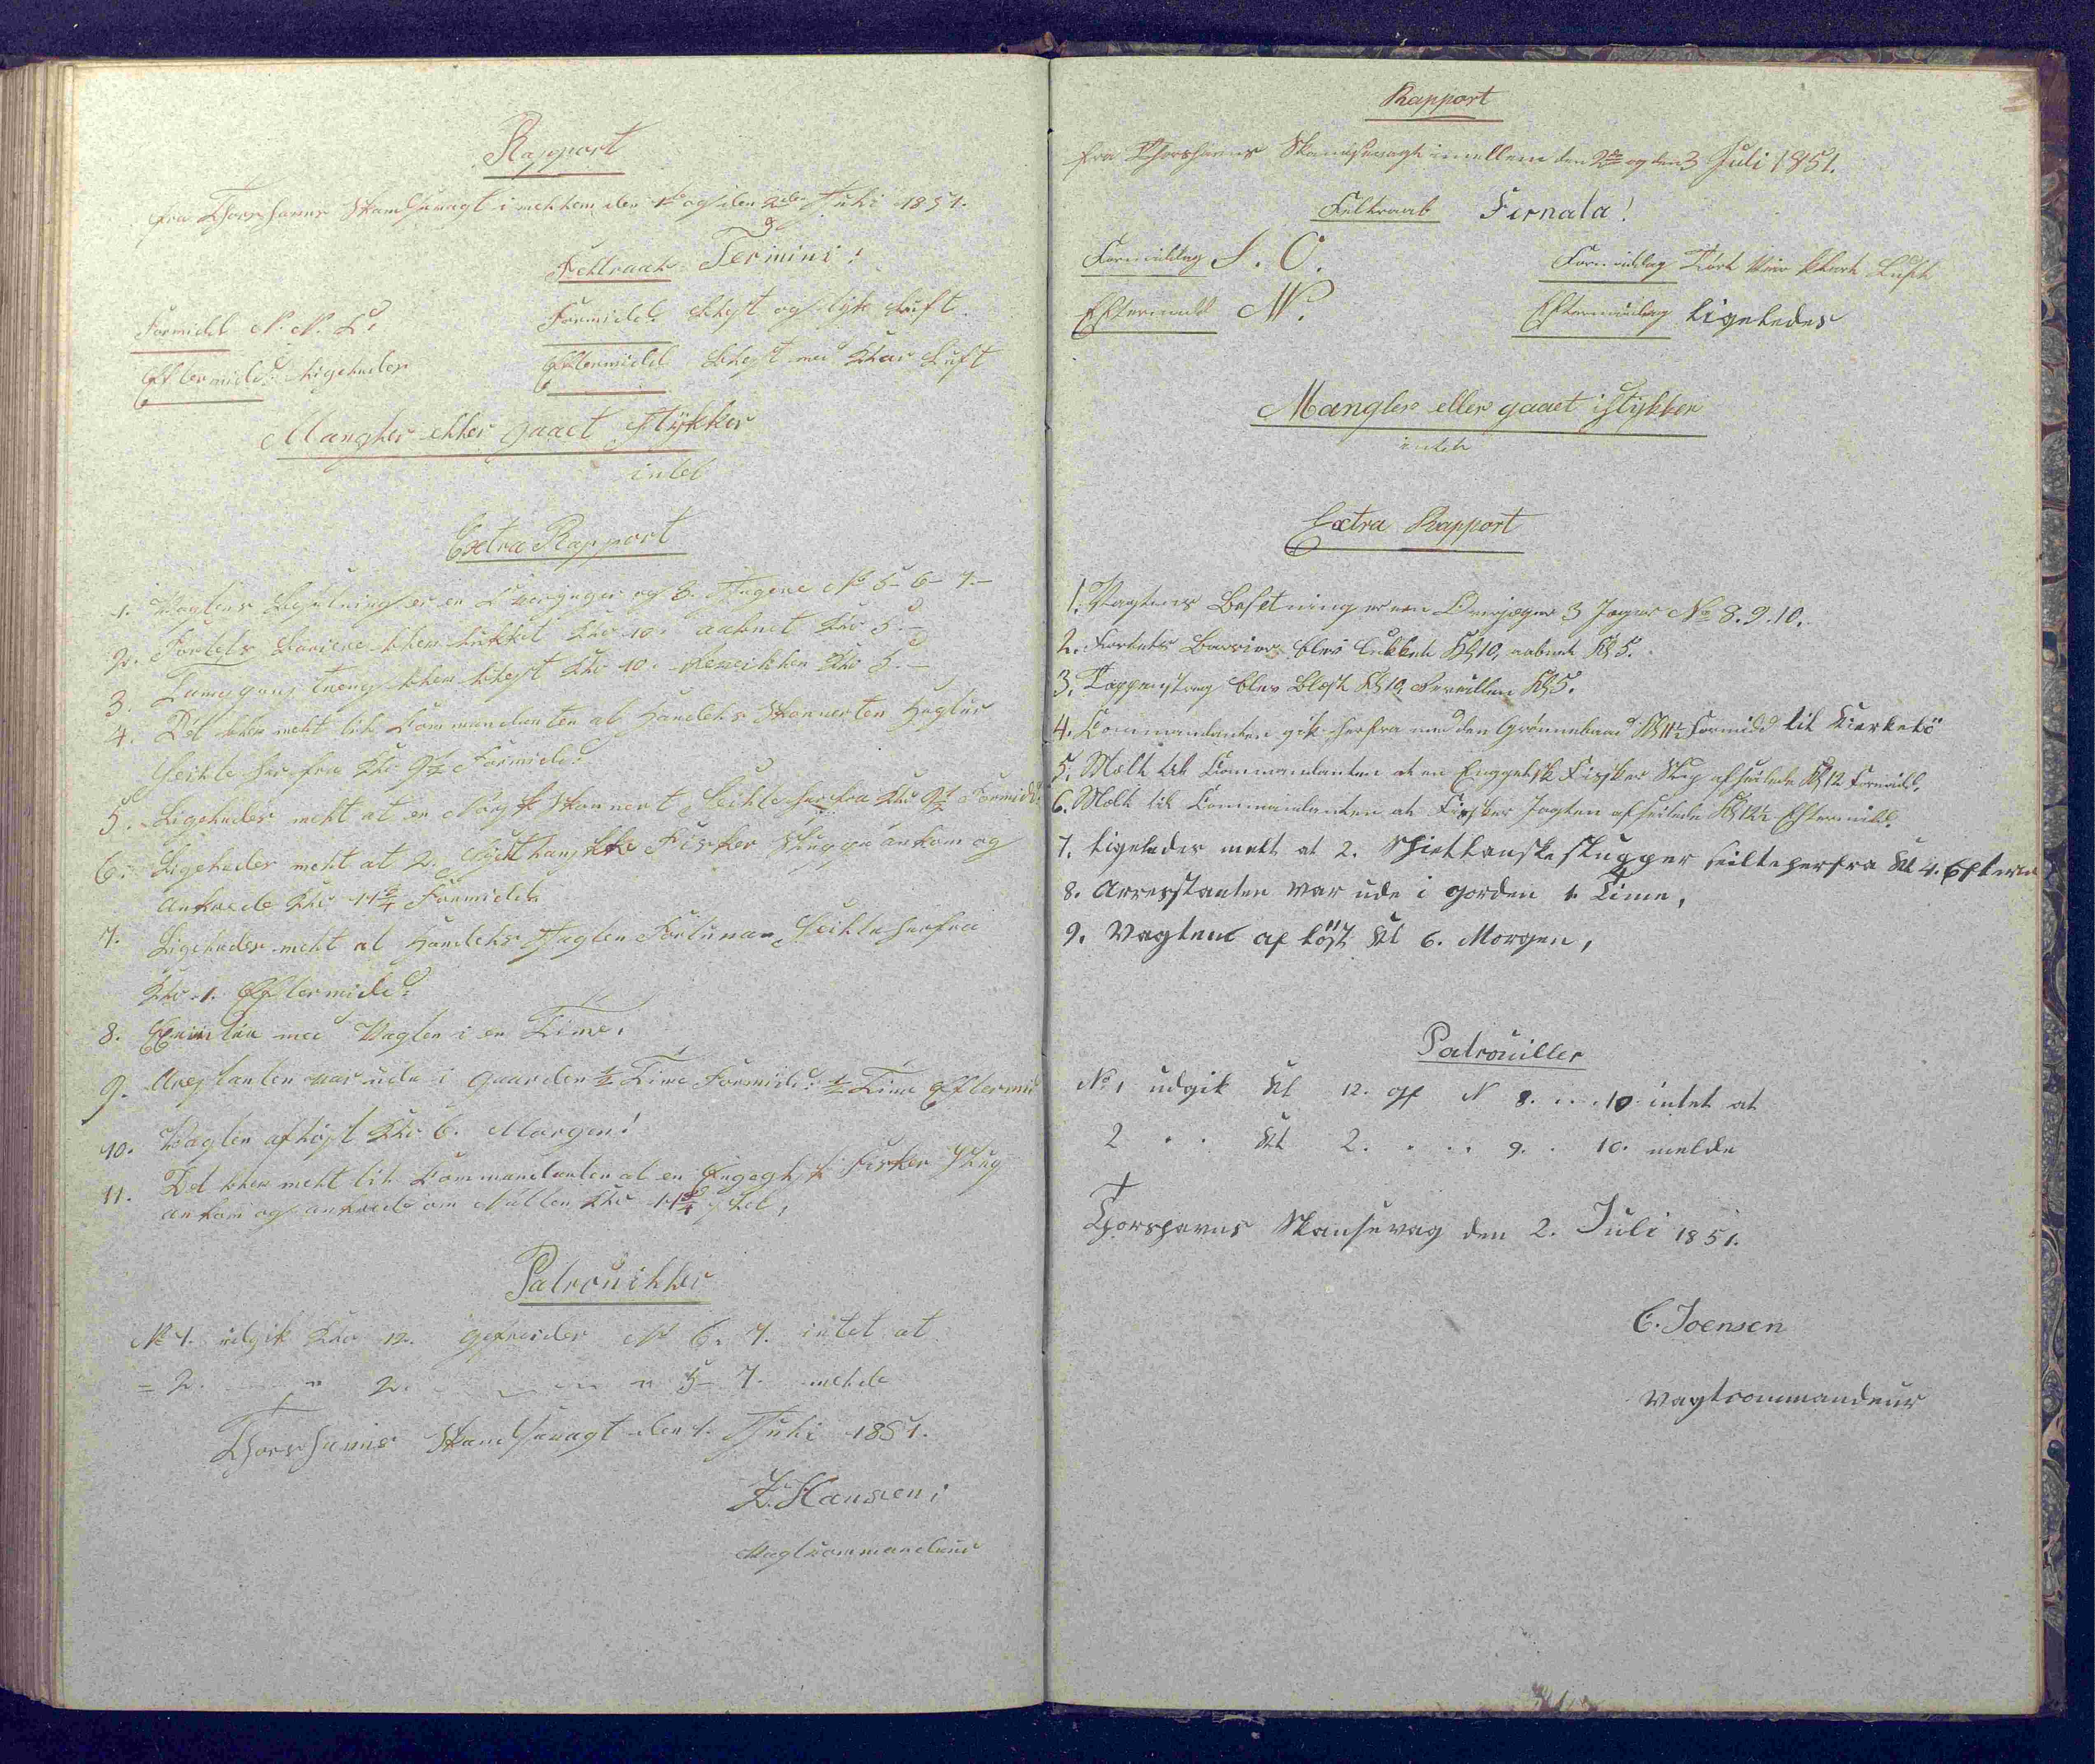 Rapport
fra Thorshavns Skandsevagt imellem den 1te og den 2den Juli 1851.
Feltraab Termini!
Formidd N. N. O.
Formidd. blæst og tyk Luft.
Eftermidd. ligeledes
Eftermidd blæst med klar Luft
Mangler eller gaaet i stykker
intet
Extra Rapport
1. Vagtens Besetning er en Overjeger og 3. Jegere No 5- 6- 7.-
2. Fortets Bariere blev lukket Klo 10. aabnet Klo 5.-
3. blev blest Klo 10. Reveillen Klo 5.-
4. Det blev melt til Commandanten at Handels Skonnerten
Seilte her fra Klo 9½ Formidd.
5. Ligeledes melt at en Skonnert Seilte herfra Klo 9½ Formidd.
6. Ligeledes melt at 2. Fisker ankom og
Ankrede Klo 11¾ Formidd.
7. Ligeledes melt at Handels Jagten Fortuna Seilte herfra
Klo 1. Eftermidd.
8. med Vagten i en Time.
9. Arestanten var ude i Gaarden ½ Time Formidd: ½ Time Eftermid
10. Vagten afløst Klo 6. Morgen!
11. Det blev melt til Commandanten at en Fisker Slug
ankom og ankrede om Natten Klo 11¾ Slet,
Patrouiller
No 1. udgik Klo 12. gefreider No 6. 7. intet at
= 2. " 2. " 5- 7. melde
Thorshavns Skandsevagt den 1. Juli 1851.
Hansen;
Vagtcommandeur
Rapport
fra Thorshavns Skandsevagt imellem den 2den og den 3 Juli 1851.
Feltraab Firnala!
Formiddag S. O.
Formiddag Tört Veir klart Luft
Eftermidd N.
Eftermiddag ligeledes
Mangler eller gaaet istykker
intet
Extra Rapport
1. Vagtens Besetning er een Overjæger 3 Jeger No 8. 9. 10.
2. Fortets Barriere blev lukket Kl 10, aabnet Kl 5.
3. Tappenstreg blev blæst Kl 10, Reveillen Kl 5.
4. Commandanten gik herfra med den Grønnebaad Kl 11½ Formidd til Kirkebö
5. Melt til Commandanten at en Engelsk Fisker Slup afseilede Kl 12 Formidd.
6. Melt til Commandanten at Fisker Jagten afseilede Kl 12½ Eftermidd.
7. ligeledes melt at 2. Shietlanske slugger seilte herfra Kl 4. Efterm
8. Arresstanten var ude i gorden 1. Time,
9. Vagtene af löst Kl 6. Morgen,
Patrouiller
No 1 udgik Kl 12. gf N 8. . . 10 intet at
2 . . Kl 2. . . . 9. . 10. melde
Thorshavns Skansevag den 2. Juli 1851.
C. Joensen
Vagtcommandeur